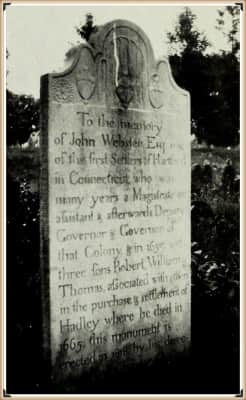 To the memory
of John Webster Esq. one
of the first Settlers of Hartford
in Connecticut who was
many years a Magistrate or
assistant & afterwards Deputy
Governor & Governor of
that Colony, & in 1659 with
three sons Robert, William &
Thomas, associated with others
in the purchase & settlement of
Hadley where he died in
1665, this monument is
erected in 1818 by his